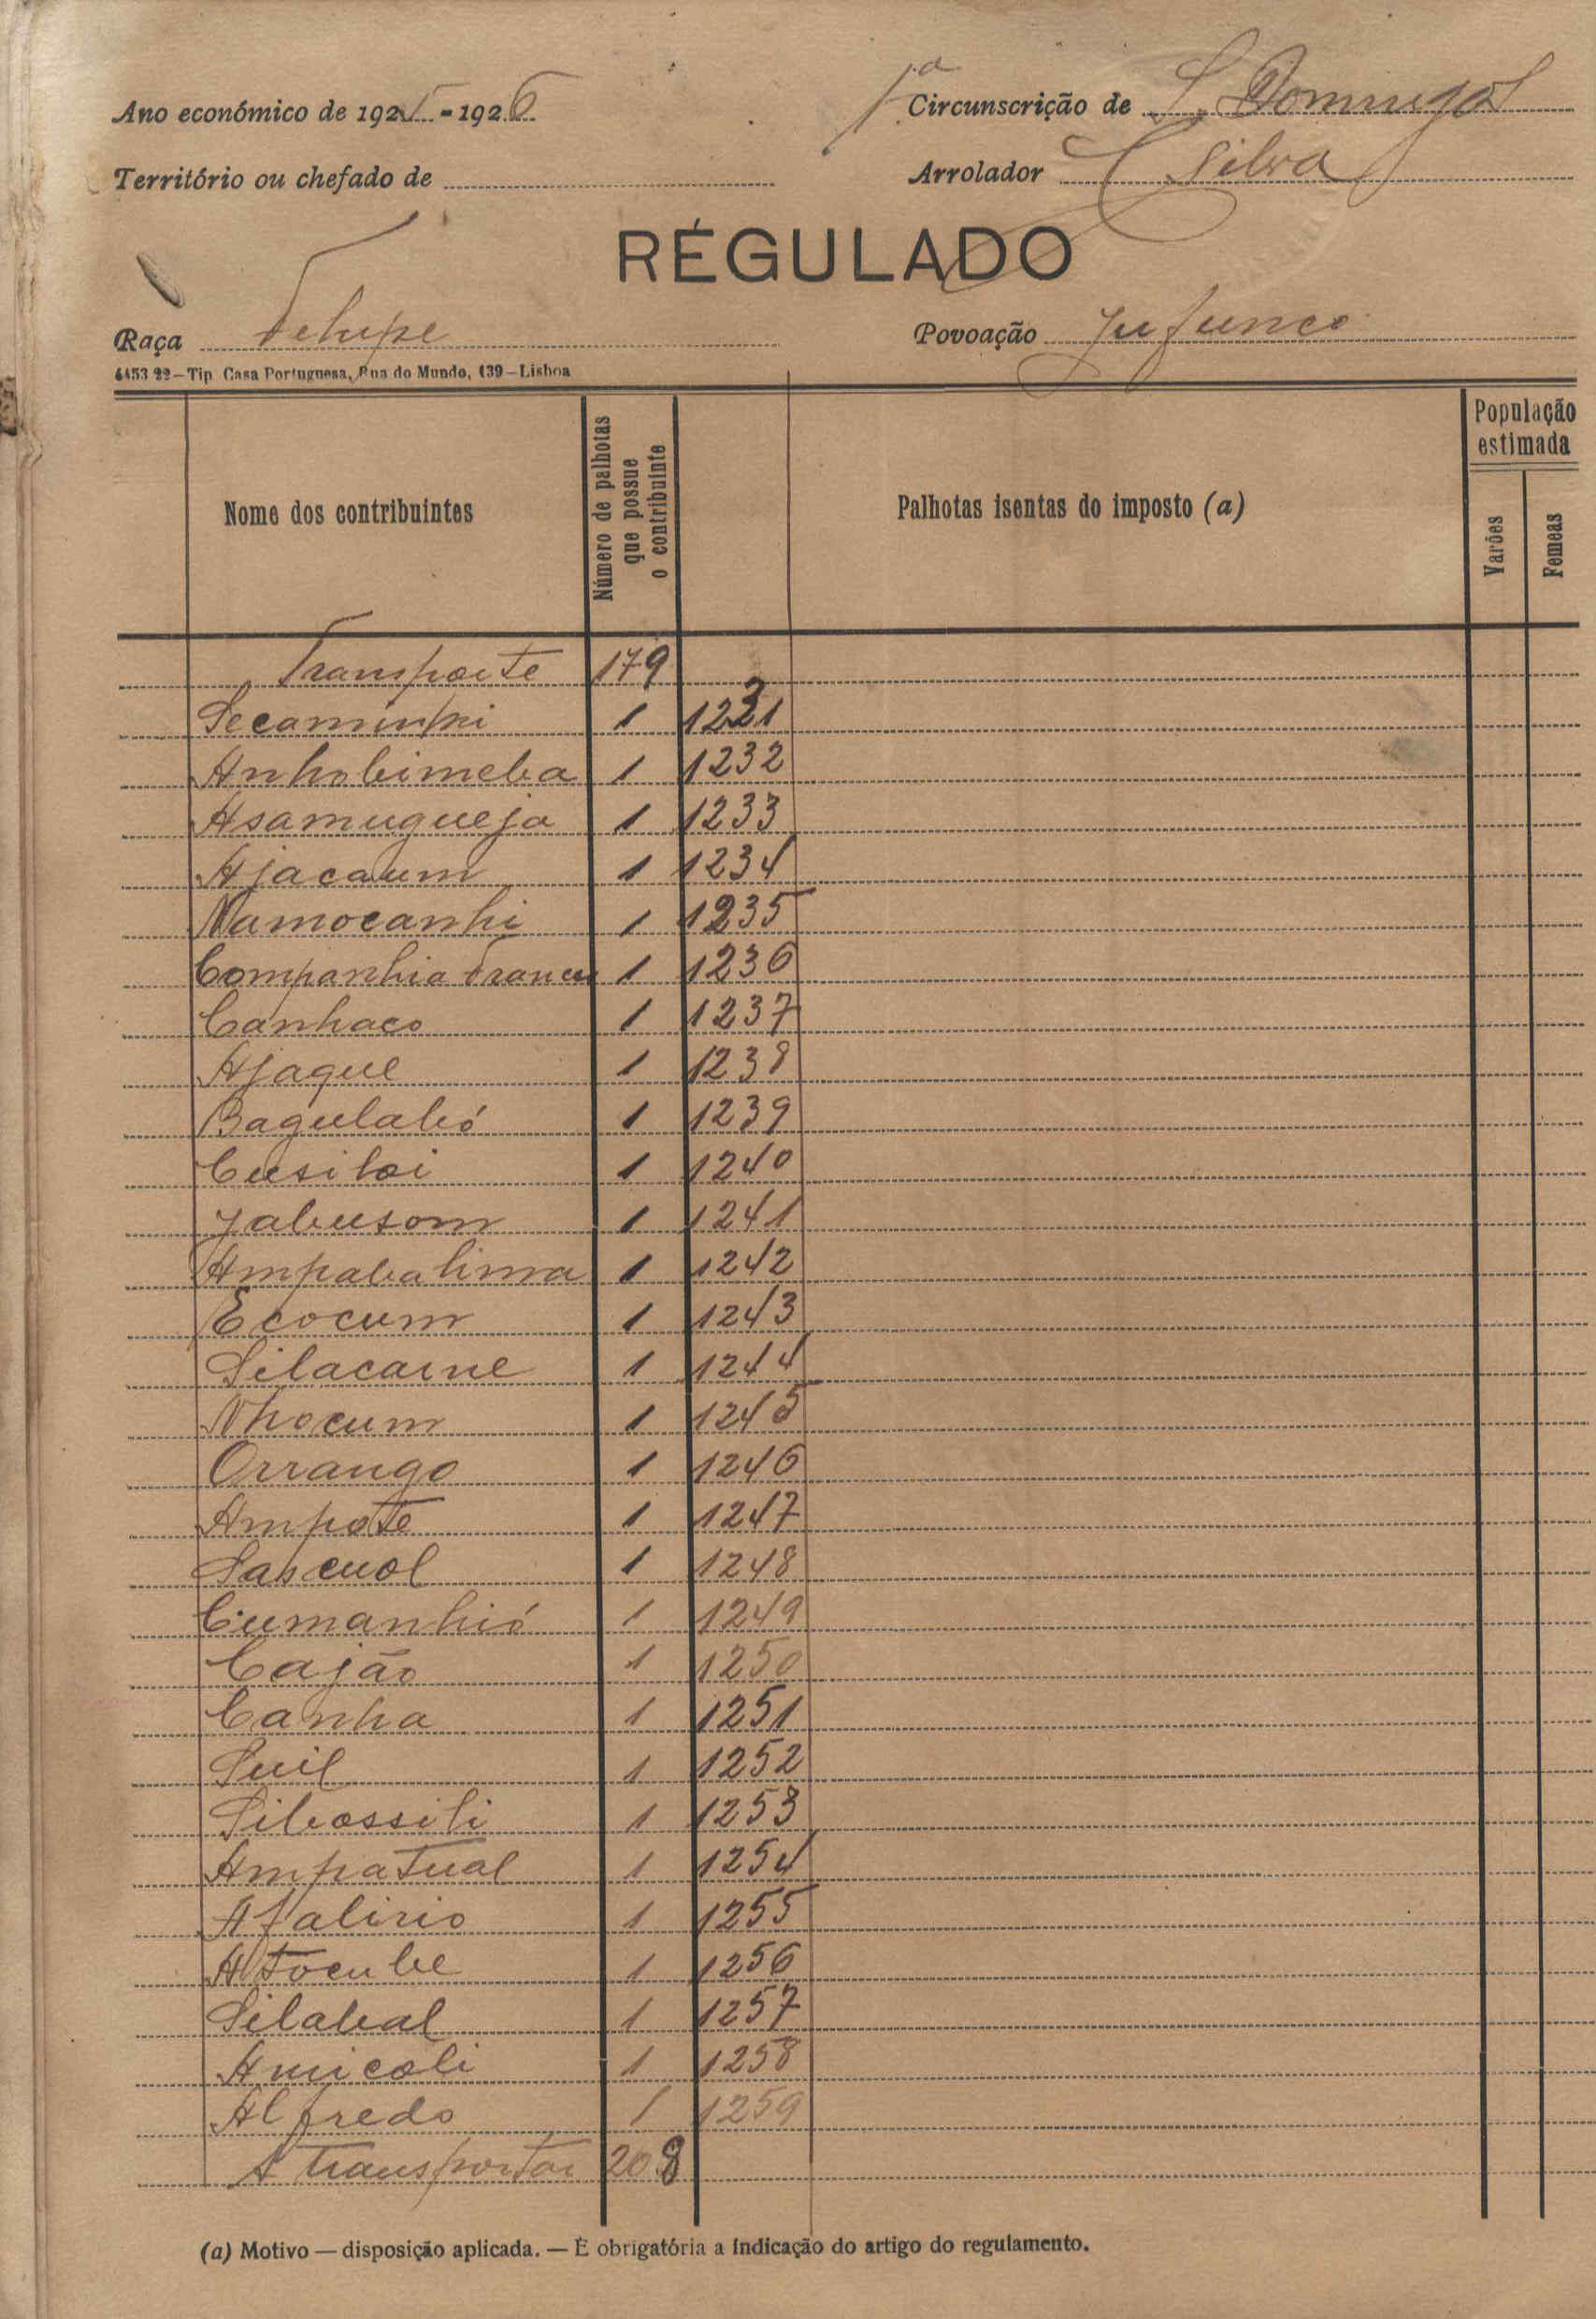 Ano económico de 1925-1926
1.ª Circunscrição de S. Domingos
Território ou chefado de
Arrolador C Silva
RÉGULADO
Raça Felupe
Povoação Jufunco
6453 22—Tip. Casa Portuguesa, Rua do Mundo, 139—Lisboa
Nome dos contribuintes
Número de palhotas que possue o contribuinte
Palhotas isentas do imposto (a)
População estimada
Varões
Femeas
Transporte 179
Secaminpi 1 1231
Anhobimeba 1 1232
Asamugueja 1 1233
Ajacaum 1 1234
Namocanhi 1 1235
Companhia 1 1236
Canhaco 1 1237
Ajaque 1 1238
Bagulabó 1 1239
Cusiloi 1 1240
Jabusom 1 1241
Ampabalima 1 1242
Ecocum 1 1243
Silacaine 1 1244
Nhocum 1 1245
Orrango 1 1246
Ampote 1 1247
1 1248
Cumanhió 1 1249
Cajão 1 1250
Canha 1 1251
Suil 1 1252
Sibossili 1 1253
Ampatual 1 1254
Afalirio 1 1255
Atocube 1 1256
Silabal 1 1257
Amicoli 1 1258
Alfredo 1 1259
A transportar 208
(a) Motivo — disposição aplicada. — É obrigatória a indicação do artigo do regulamento.